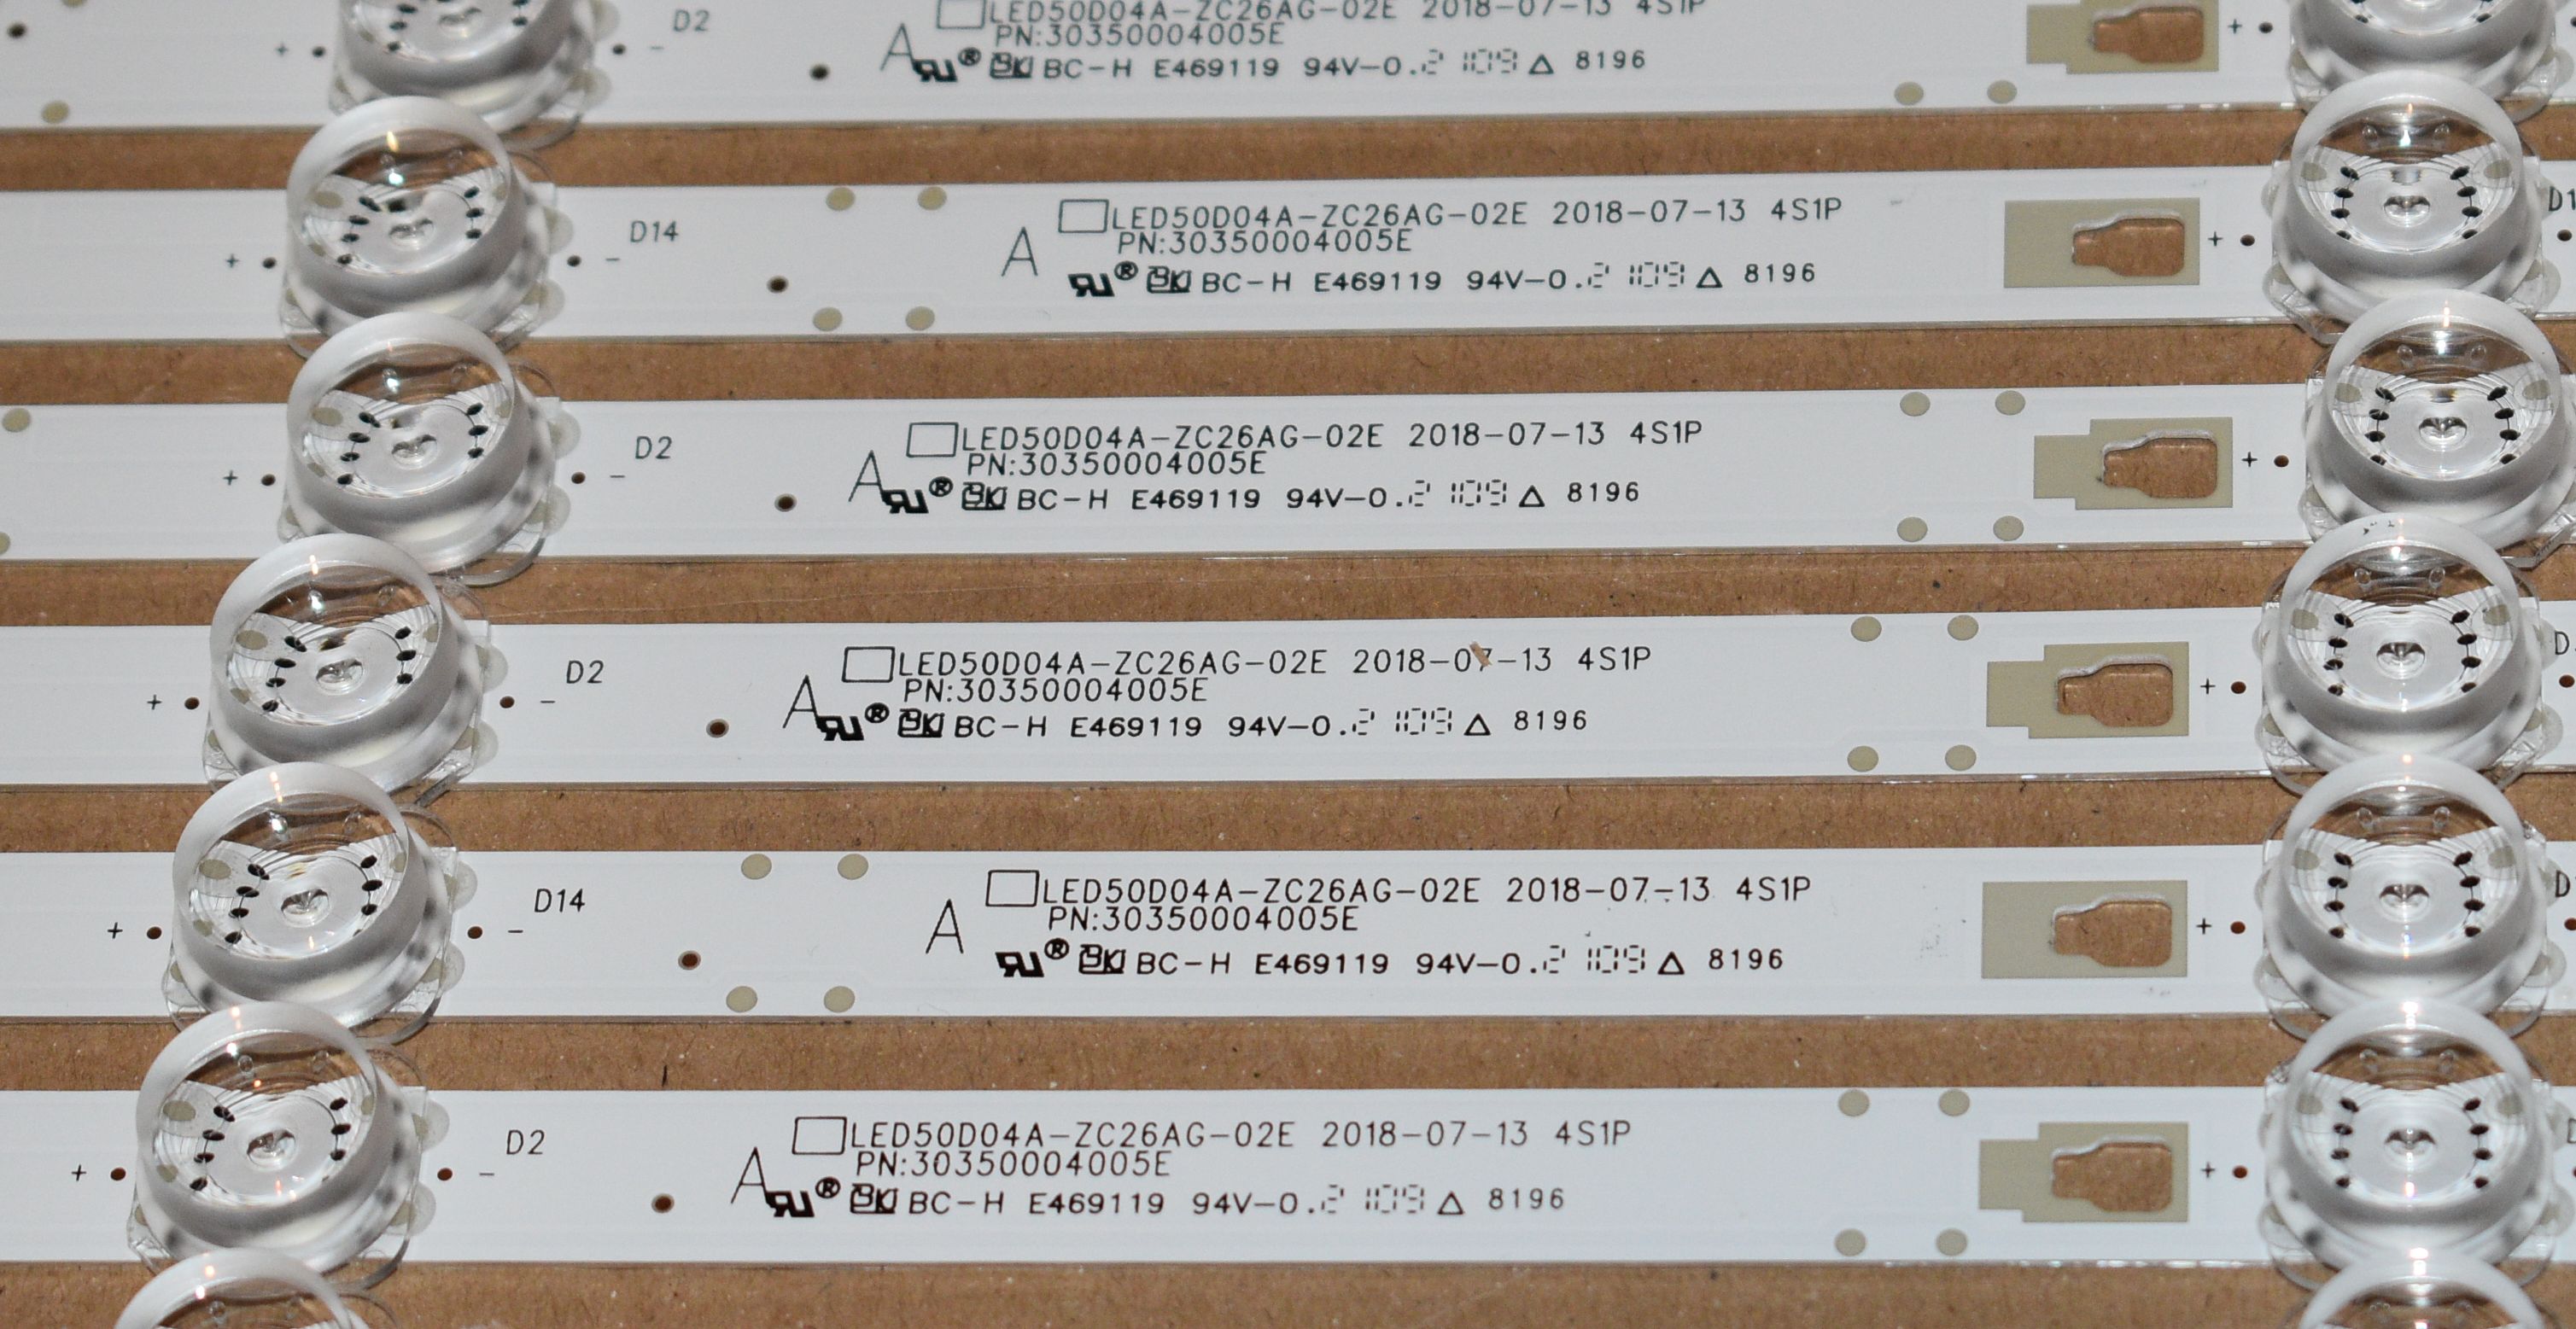 + - D2 LED50D04A-ZC26AG-02E 2018-07-13 4S1P +
PN:30350004005E
A RU® BKJ BC-H E469119 94V-0. 2109 △ 8196
+ - D14 LED50D04A-ZC26AG-02E 2018-07-13 4S1P +
PN:30350004005E
A RU® BKJ BC-H E469119 94V-0. 2109 △ 8196
+ - D2 LED50D04A-ZC26AG-02E 2018-07-13 4S1P +
PN:30350004005E
A RU® BKJ BC-H E469119 94V-0. 2109 △ 8196
+ - D2 LED50D04A-ZC26AG-02E 2018-07-13 4S1P +
PN:30350004005E
A RU® BKJ BC-H E469119 94V-0. 2109 △ 8196
+ - D14 LED50D04A-ZC26AG-02E 2018-07-13 4S1P +
PN:30350004005E
A RU® BKJ BC-H E469119 94V-0. 2109 △ 8196
+ - D2 LED50D04A-ZC26AG-02E 2018-07-13 4S1P +
PN:30350004005E
A RU® BKJ BC-H E469119 94V-0. 2109 △ 8196